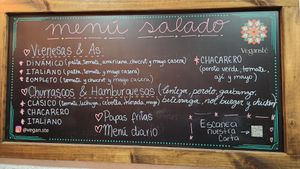 menú salado
Veganste
Vienesas & As
DINÁMICO (palta, tomate, americana, chucrut y mayo casera)
ITALIANO (palta, tomate y mayo casera)
COMPLETO (tomate, chucrut y mayo casera)
CHACARERO
(poroto verde, tomate,
ají y mayo)
Churrascos & Hamburguesas (lenteja, poroto, garbanzo,
betarraga, not burger y chicken)
CLÁSICO (tomate, lechuga, cebolla, mayo)
CHACARERO
ITALIANO
Papas fritas
Menú diario
Escanea
nuestra
Carta
@vegan.ste